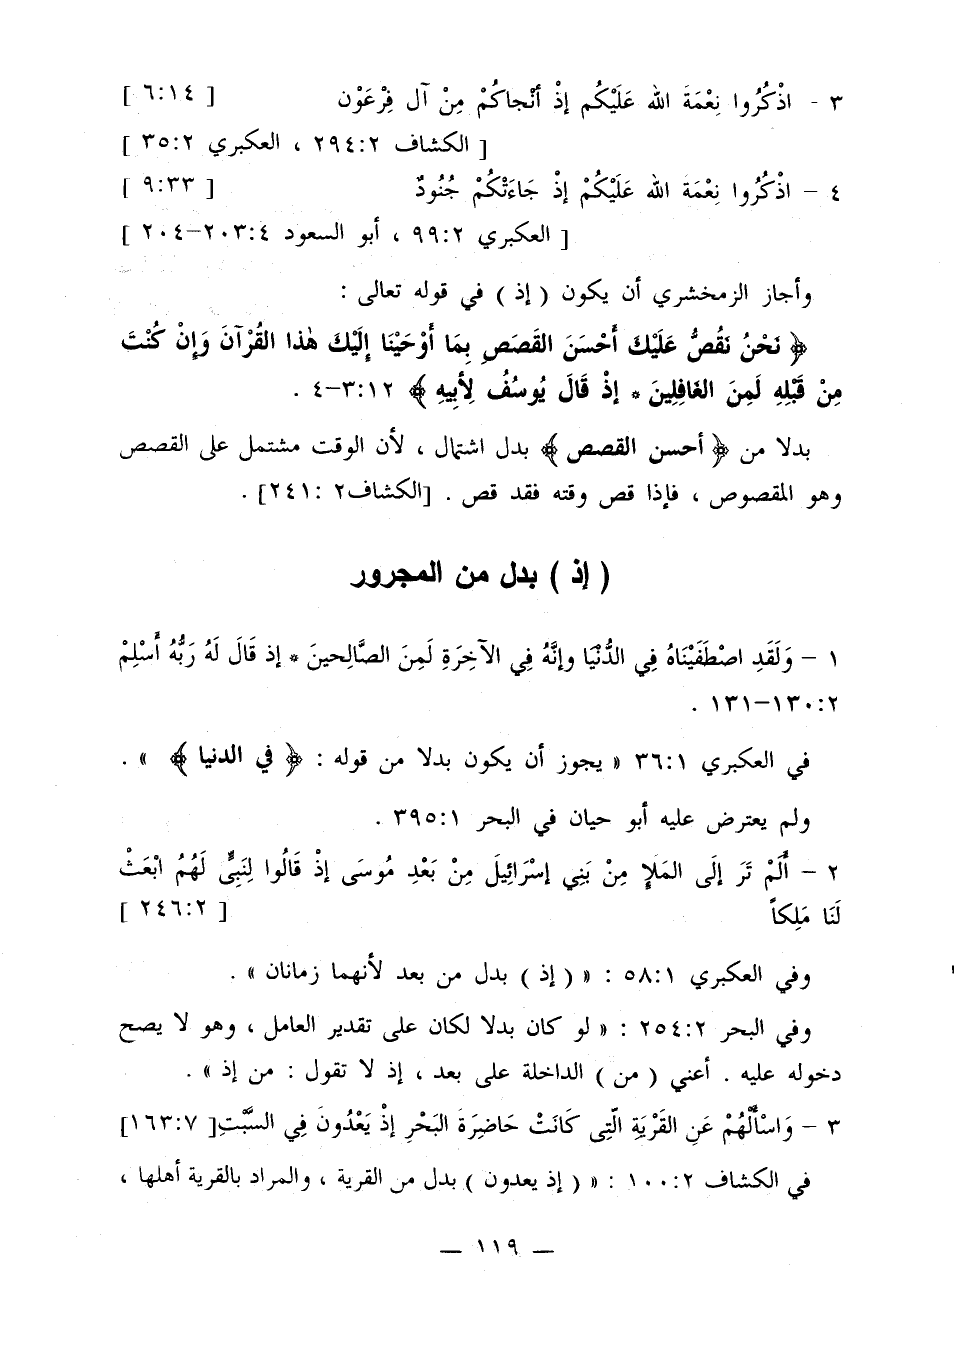 ٣ - اذْكُرُوا نِعْمَةَ الله عَلَيْكُم إذْ أنْجاكُمْ مِنْ آل فِرْعَوْن [ ٦:١٤ ]
[ الكشاف ٢٩٤:٢ ، العكبري ٣٥:٢ ]
٤ - اذْكُرُوا نِعْمَةَ الله عَلَيْكُمْ إذْ جَاءَتْكُمْ جُنُودٌ [ ٩:٣٣ ]
[ العكبري ٩٩:٢ ، أبو السعود ٢٠٣:٤-٢٠٤ ]
وأجاز الزمخشري أن يكون ( إذ ) في قوله تعالى :
﴿ نَحْنُ نَقُصُّ عَلَيْكَ أَحْسَنَ القَصَصِ بِمَا أَوْحَيْنَا إلَيْكَ هٰذا القُرْآنَ وَإِنْ كُنْتَ
مِنْ قَبْلِهِ لَمِنَ الغَافِلِينَ * إذْ قَالَ يُوسُفُ لِأبِيهِ ﴾ ٣:١٢-٤ .
بدلا من ﴿ أحسن القصص ﴾ بدل اشتمال ، لأن الوقت مشتمل على القصص
وهو المقصوص ، فإذا قص وقته فقد قص . [الكشاف٢ :٢٤١] .
( إذ ) بدل من المجرور
١ - وَلَقَدِ اصْطَفَيْنَاهُ فِي الدُّنْيَا وإنَّهُ فِي الآخِرَةِ لَمِنَ الصَّالِحينَ * إذ قَالَ لَهُ رَبُّهُ أَسْلِمْ
١٣٠:٢-١٣١ .
في العكبري ٣٦:١ « يجوز أن يكون بدلا من قوله : ﴿ في الدنيا ﴾ » .
ولم يعترض عليه أبو حيان في البحر ٣٩٥:١ .
٢ - أَلَمْ تَرَ إلَى المَلإِ مِنْ بَنِي إسْرَائِيلَ مِنْ بَعْدِ مُوسَى إذْ قَالُوا لِنَبِيٍّ لَهُمُ ابْعَثْ
لَنَا مَلِكاً [ ٢٤٦:٢ ]
وفي العكبري ٥٨:١ : « ( إذ ) بدل من بعد لأنهما زمانان » .
وفي البحر ٢٥٤:٢ : « لو كان بدلا لكان على تقدير العامل ، وهو لا يصح
دخوله عليه . أعني ( من ) الداخلة على بعد ، إذ لا تقول : من إذ » .
٣ - وَاسْأَلْهُمْ عَنِ القَرْيَةِ الَّتِى كَانَتْ حَاضِرَةَ البَحْرِ إذْ يَعْدُونَ فِي السَّبْتِ[ ١٦٣:٧]
في الكشاف ١٠٠:٢ : « ( إذ يعدون ) بدل من القرية ، والمراد بالقرية أهلها ،
— ١١٩ —